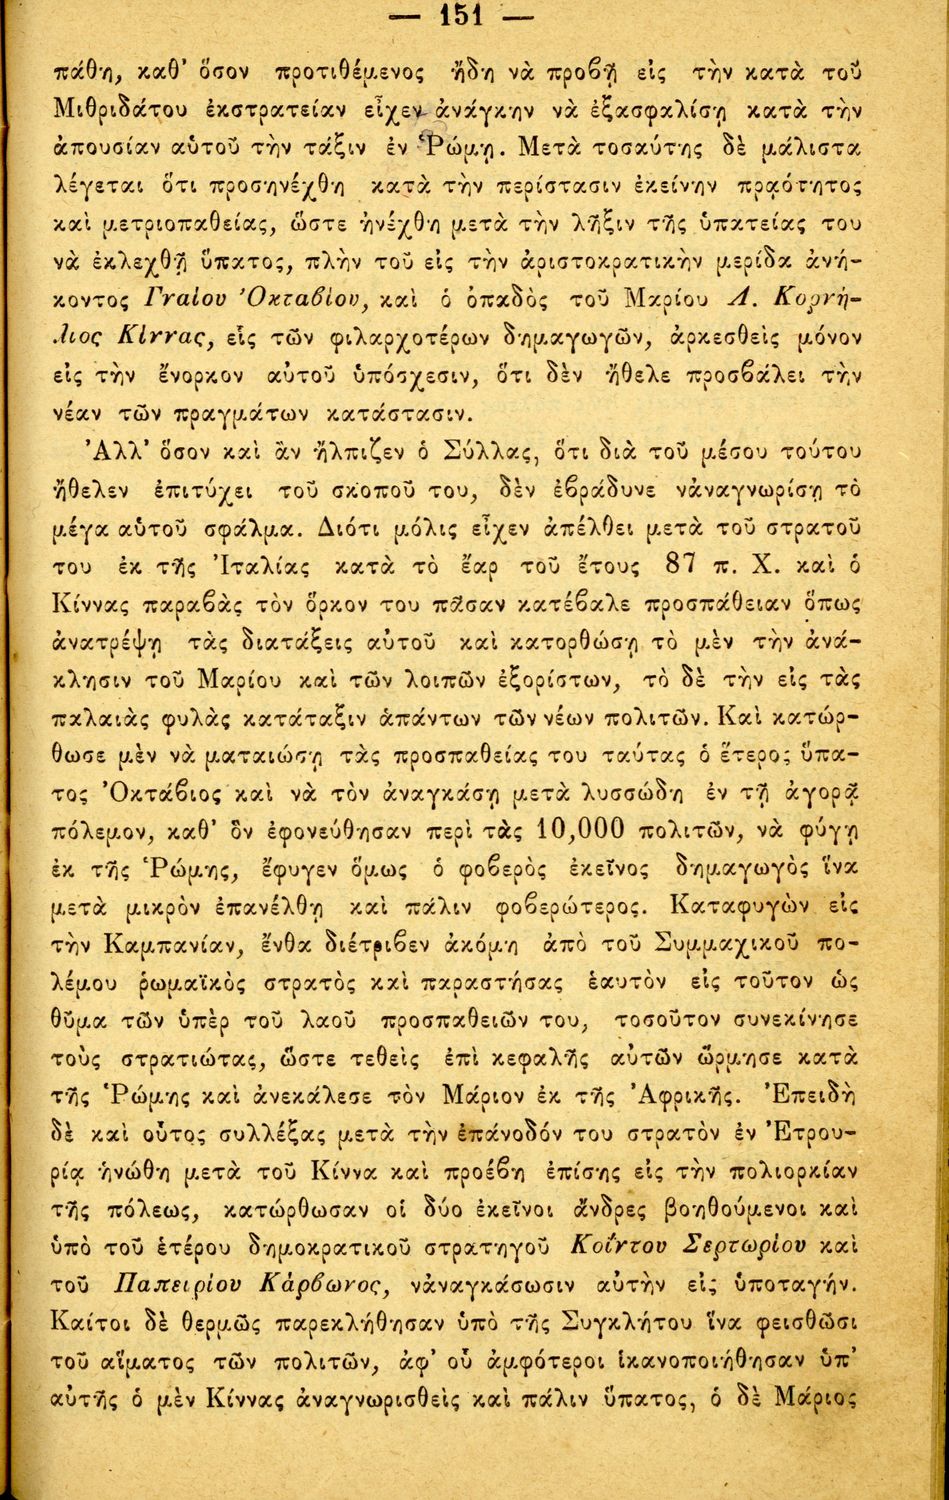 — 151 —
πάθη, καθ' ὅσον προτιθέμενος ἤδη νὰ προβῇ εἰς τὴν κατὰ τοῦ
Μιθριδάτου ἐκστρατείαν εἶχεν ἀνάγκην νὰ ἐξασφαλίσῃ κατὰ τὴν
ἀπουσίαν αὑτοῦ τὴν τάξιν ἐν Ῥώμῃ. Μετὰ τοσαύτης δὲ μάλιστα
λέγεται ὅτι προσηνέχθη κατὰ τὴν περίστασιν ἐκείνην πραότητος
καὶ μετριοπαθείας, ὥστε ἠνέχθη μετὰ τὴν λῆξιν τῆς ὑπατείας του
νὰ ἐκλεχθῇ ὕπατος, πλὴν τοῦ εἰς τὴν ἀριστοκρατικὴν μερίδα ἀνή-
κοντος Γναίου Ὀκταβίου, καὶ ὁ ὀπαδὸς τοῦ Μαρίου Λ. Κορνή-
λιος Κίννας, εἷς τῶν φιλαρχοτέρων δημαγωγῶν, ἀρκεσθεὶς μόνον
εἰς τὴν ἔνορκον αὐτοῦ ὑπόσχεσιν, ὅτι δὲν ἤθελε προσβάλει τὴν
νέαν τῶν πραγμάτων κατάστασιν.
Ἀλλ' ὅσον καὶ ἂν ἤλπιζεν ὁ Σύλλας, ὅτι διὰ τοῦ μέσου τούτου
ἤθελεν ἐπιτύχει τοῦ σκοποῦ του, δὲν ἐβράδυνε νἀναγνωρίσῃ τὸ
μέγα αὑτοῦ σφάλμα. Διότι μόλις εἶχεν ἀπέλθει μετὰ τοῦ στρατοῦ
του ἐκ τῆς Ἰταλίας κατὰ τὸ ἔαρ τοῦ ἔτους 87 π. Χ. καὶ ὁ
Κίννας παραβὰς τὸν ὅρκον του πᾶσαν κατέβαλε προσπάθειαν ὅπως
ἀνατρέψῃ τὰς διατάξεις αὐτοῦ καὶ κατορθώσῃ τὸ μὲν τὴν ἀνά-
κλησιν τοῦ Μαρίου καὶ τῶν λοιπῶν ἐξορίστων, τὸ δὲ τὴν εἰς τὰς
παλαιὰς φυλὰς κατάταξιν ἁπάντων τῶν νέων πολιτῶν. Καὶ κατώρ-
θωσε μὲν νὰ ματαιώσῃ τὰς προσπαθείας του ταύτας ὁ ἕτερος ὕπα-
τος Ὀκτάβιος καὶ νὰ τὸν ἀναγκάσῃ μετὰ λυσσώδη ἐν τῇ ἀγορᾷ
πόλεμον, καθ' ὃν ἐφονεύθησαν περὶ τὰς 10,000 πολιτῶν, νὰ φύγῃ
ἐκ τῆς Ῥώμης, ἔφυγεν ὅμως ὁ φοβερὸς ἐκεῖνος δημαγωγὸς ἵνα
μετὰ μικρὸν ἐπανέλθῃ καὶ πάλιν φοβερώτερος. Καταφυγὼν εἰς
τὴν Καμπανίαν, ἔνθα διέτριβεν ἀκόμη ἀπὸ τοῦ Συμμαχικοῦ πο-
λέμου ῥωμαϊκὸς στρατὸς καὶ παραστήσας ἑαυτὸν εἰς τοῦτον ὡς
θῦμα τῶν ὑπὲρ τοῦ λαοῦ προσπαθειῶν του, τοσοῦτον συνεκίνησε
τοὺς στρατιώτας, ὥστε τεθεὶς ἐπὶ κεφαλῆς αὐτῶν ὥρμησε κατὰ
τῆς Ῥώμης καὶ ἀνεκάλεσε τὸν Μάριον ἐκ τῆς Ἀφρικῆς. Ἐπειδὴ
δὲ καὶ οὗτος συλλέξας μετὰ τὴν ἐπάνοδόν του στρατὸν ἐν Ἐτρου-
ρίᾳ ἡνώθη μετὰ τοῦ Κίννα καὶ προέβη ἐπίσης εἰς τὴν πολιορκίαν
τῆς πόλεως, κατώρθωσαν οἱ δύο ἐκεῖνοι ἄνδρες βοηθούμενοι καὶ
ὑπὸ τοῦ ἑτέρου δημοκρατικοῦ στρατηγοῦ Κοΐντου Σερτωρίου καὶ
τοῦ Παπειρίου Κάρβωνος, νἀναγκάσωσιν αὐτὴν εἰς ὑποταγήν.
Καίτοι δὲ θερμῶς παρεκλήθησαν ὑπὸ τῆς Συγκλήτου ἵνα φεισθῶσι
τοῦ αἵματος τῶν πολιτῶν, ἀφ' οὗ ἀμφότεροι ἱκανοποιήθησαν ὑπ'
αὐτῆς ὁ μὲν Κίννας ἀναγνωρισθεὶς καὶ πάλιν ὕπατος, ὁ δὲ Μάριος